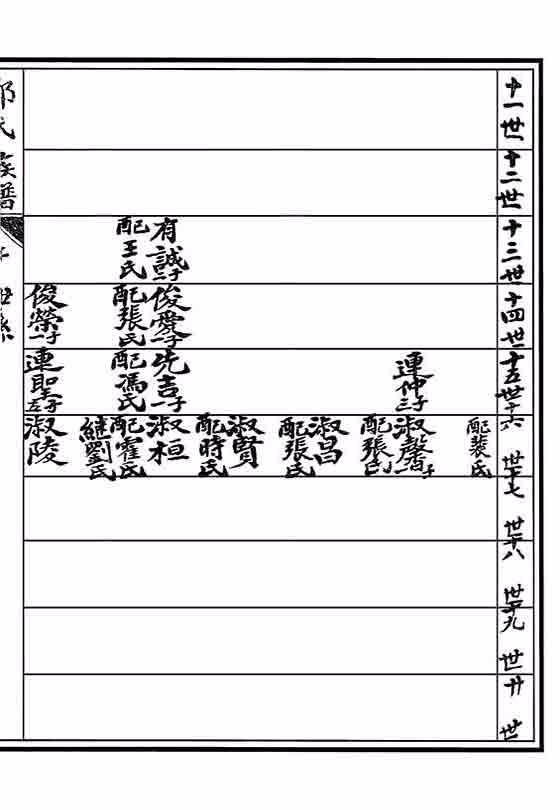 十一世
十二世
十三世
十四世
十五世
十六世
十七世
十八世
十九世
廿世
有誠一子
配王氏
俊愛一子
配張氏
俊榮一子
連仲三子
先吉一子
配馮氏
連聖
配裴氏
淑馨一子
配張氏
淑昌
配張氏
淑賢
配時氏
淑桓
配霍氏
繼劉氏
淑陵
氏族譜
世系